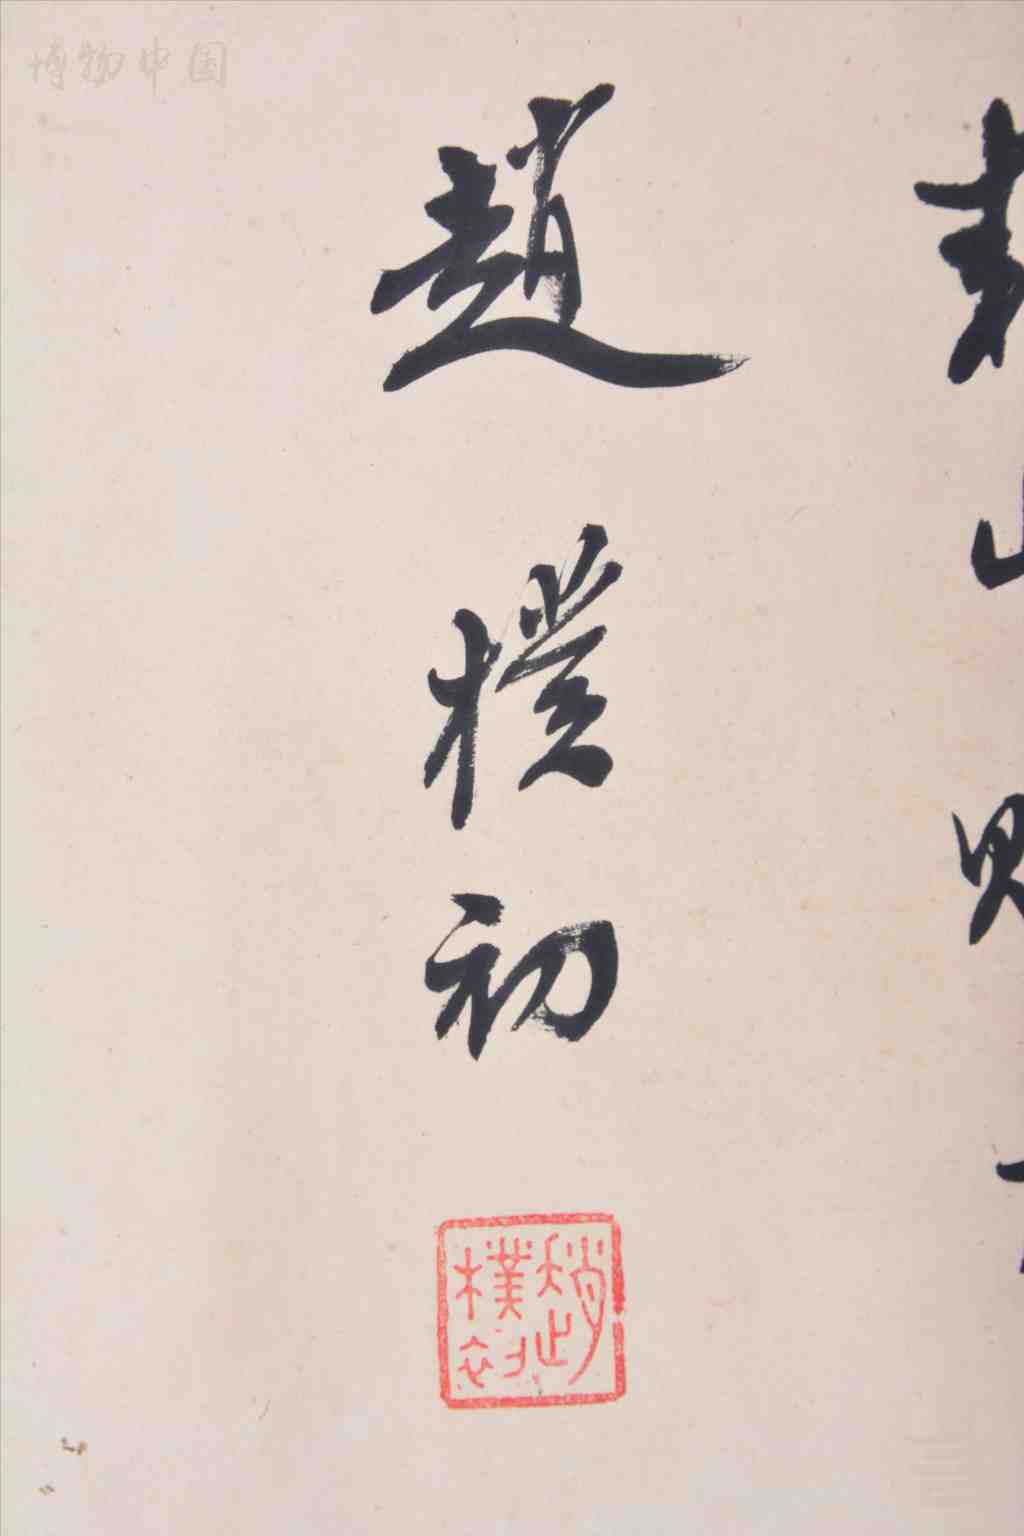 博物中国
趙樸初
趙樸初